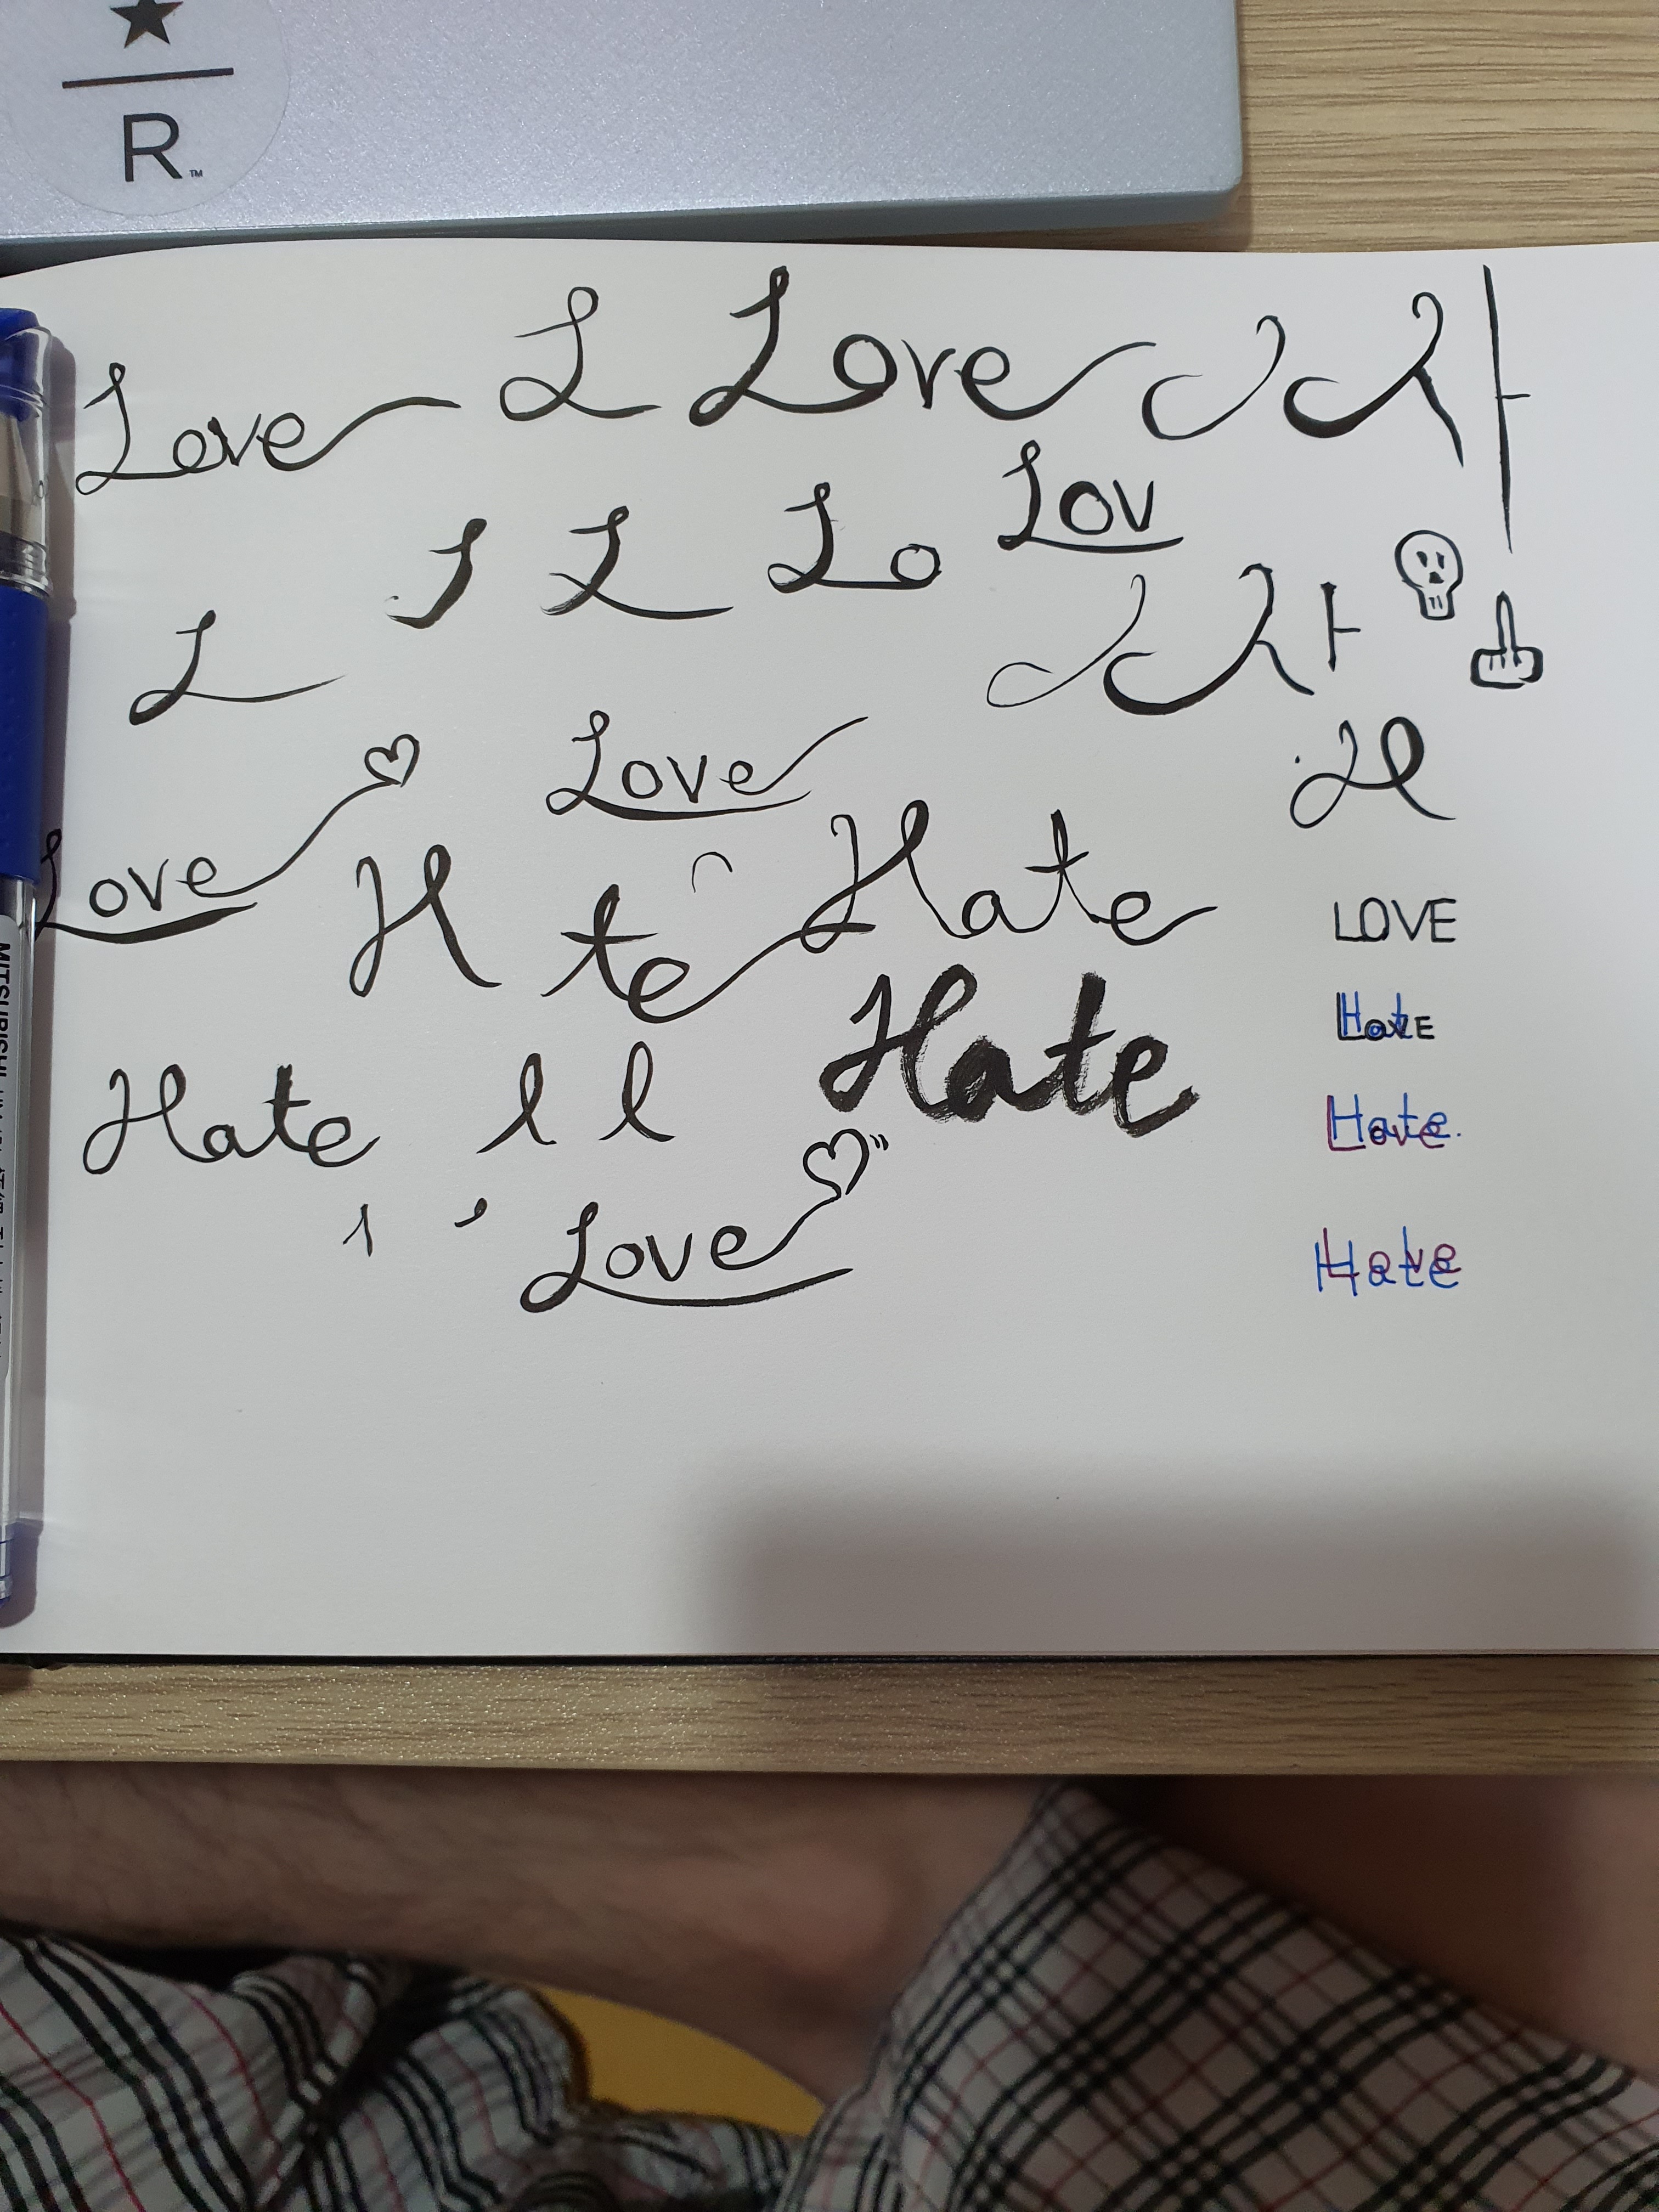 R™
Love L Love
사
L Lo Lov
L
사
Love
Love
H te Hate
H
LOVE
Hate
Hate l l
Hate
Love
Hate
Love
Hate
Love
Love
MITSUBISHI